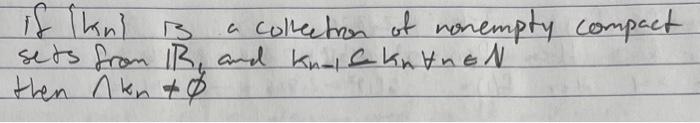 if {Kn} is a collection of nonempty compact
sets from ℝ, and Kn-1 ⊆ Kn ∀n∈N
then ∩Kn ≠ ∅